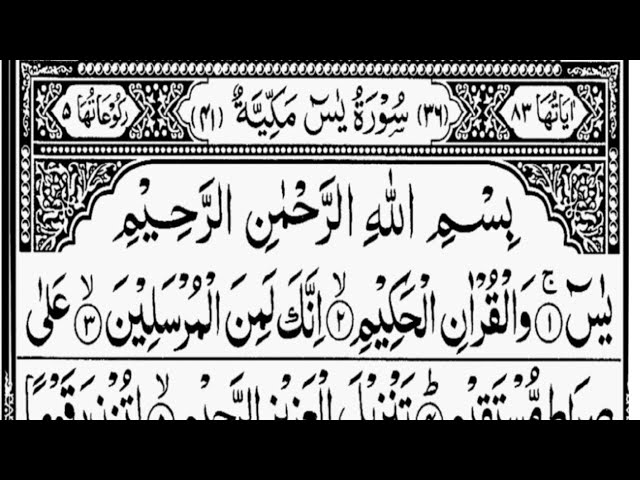 اٰيَاتُهَا ٨٣ (٣٦) سُوْرَةُ يٰسٓ مَكِّيَّةٌ (٤١) رُكُوْعَاتُهَا ٥
بِسْمِ اللّٰهِ الرَّحْمٰنِ الرَّحِيْمِ
يٰسٓ ۚ ﴿١﴾ وَالْقُرْاٰنِ الْحَكِيْمِ ۙ ﴿٢﴾ اِنَّكَ لَمِنَ الْمُرْسَلِيْنَ ۙ ﴿٣﴾ عَلٰى
صِرَاطٍ مُّسْتَقِيْمٍ ؕ ﴿٤﴾ تَنْزِيْلَ الْعَزِيْزِ الرَّحِيْمِ ۙ ﴿٥﴾ لِتُنْذِرَ قَوْمًا